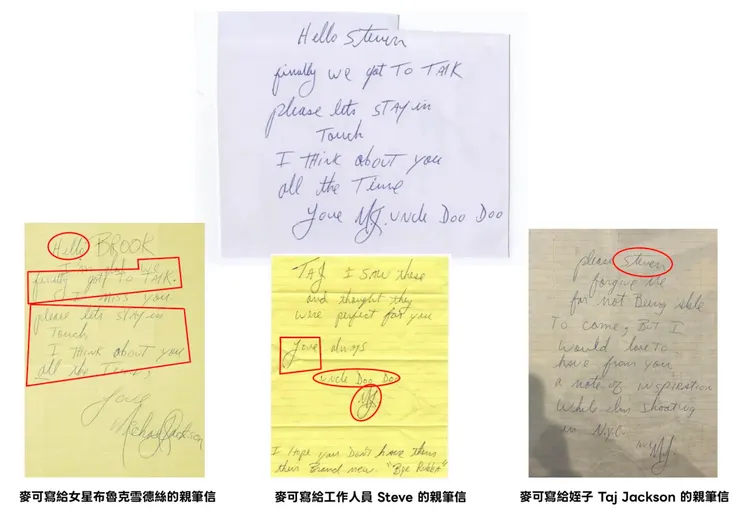 Hello Steven
finally we got To TALK
please lets STAY in
Touch
I Think about you
all the Time
Love MJ. uncle Doo Doo
Hello BROOK
I'm glad we
finally got To TALK.
I miss you
please lets STAY in
Touch
I Think About you
all the Time,
Love
Michael Jackson
TAJ I saw these
and thought they
were perfect for you
Love always
uncle Doo Doo
MJ
I Hope you Don't have them
their Brand new. "Bye Rubba"
please Steven
forgive me
for not Being able
To come, BUT I
would love to
have from you
a note of inspiration
while Im shooting
in N.Y.C.
love MJ
麥可寫給女星布魯克雪德絲的親筆信
麥可寫給工作人員 Steve 的親筆信
麥可寫給姪子 Taj Jackson 的親筆信